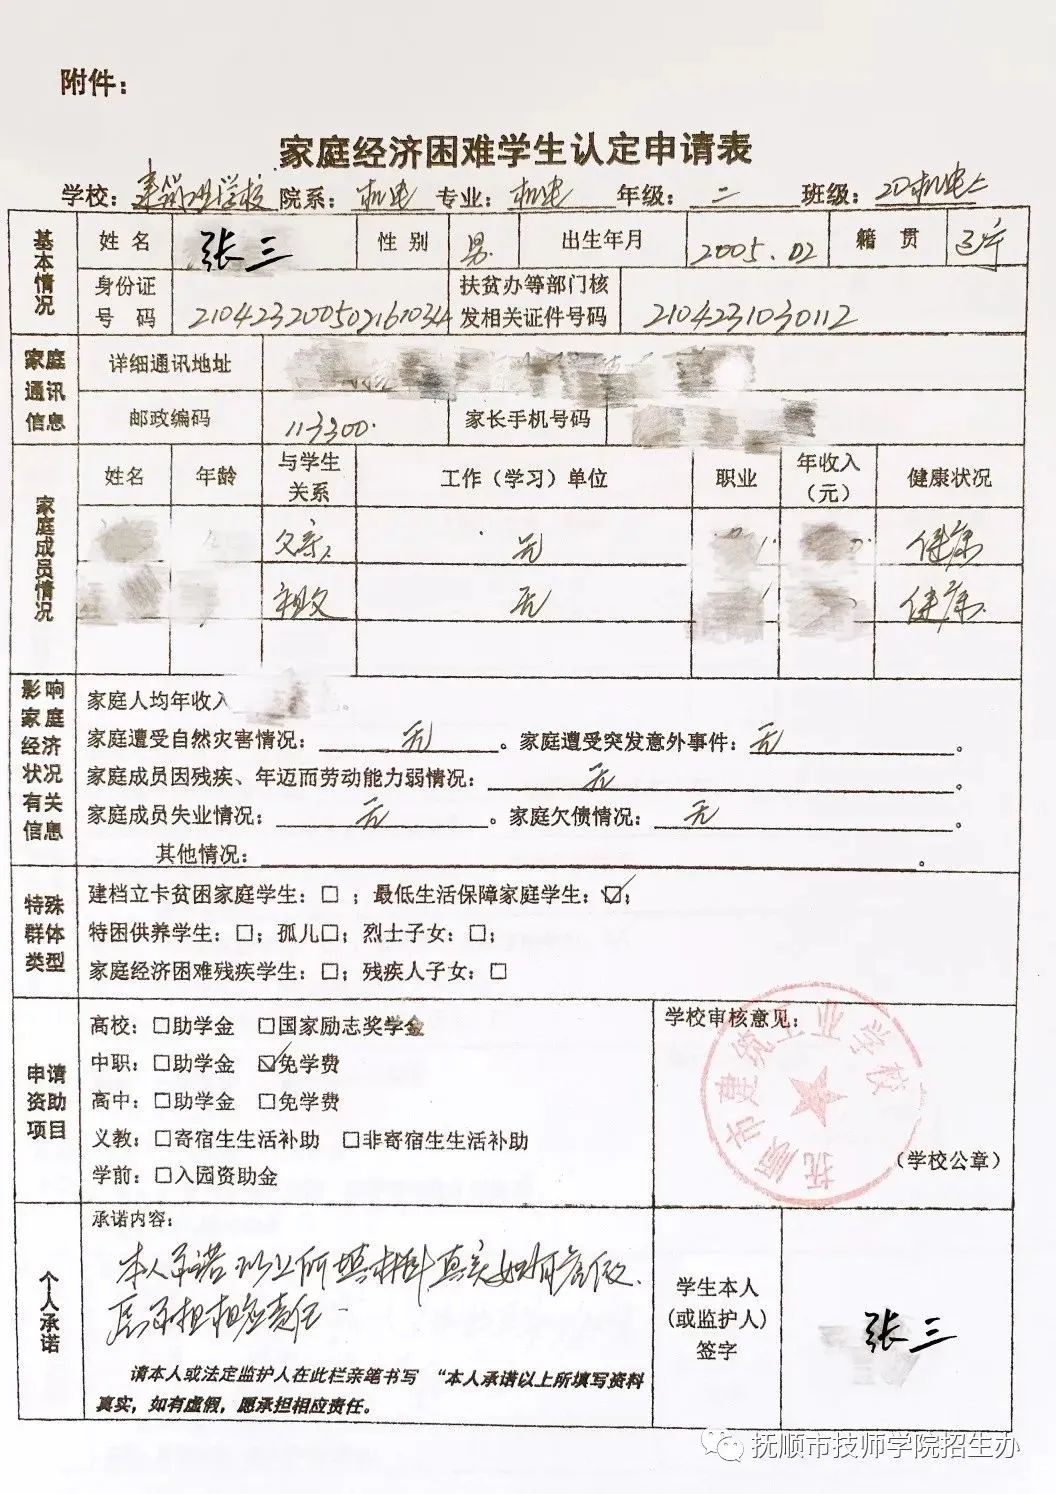 附件：
家庭经济困难学生认定申请表
学校：建筑工业学校 院系：机电 专业：机电 年级：二 班级：
基本情况 姓名 张三 性别 男 出生年月 2005.02 籍贯
身份证号码 210423200502161034 扶贫办等部门核发相关证件号码 2104231030112
家庭通讯信息 详细通讯地址
邮政编码 113300 家长手机号码
家庭成员情况 姓名 年龄 与学生关系 工作（学习）单位 职业 年收入（元） 健康状况
父亲 无 健康
祖父 无 健康
影响家庭经济状况有关信息
家庭人均年收入
家庭遭受自然灾害情况：无。家庭遭受突发意外事件：无。
家庭成员因残疾、年迈而劳动能力弱情况：无。
家庭成员失业情况：无。家庭欠债情况：无。
其他情况：。
特殊群体类型
建档立卡贫困家庭学生：□；最低生活保障家庭学生：☑；
特困供养学生：□；孤儿□；烈士子女：□；
家庭经济困难残疾学生：□；残疾人子女：□
申请资助项目
高校：□助学金 □国家励志奖学金
中职：□助学金 ☑免学费
高中：□助学金 □免学费
义教：□寄宿生生活补助 □非寄宿生生活补助
学前：□入园资助金
学校审核意见：
抚顺市建筑工业学校
（学校公章）
个人承诺
承诺内容：
本人承诺以上所填材料真实如有虚假，
愿承担相应责任.
请本人或法定监护人在此栏亲笔书写 “本人承诺以上所填写资料
真实，如有虚假，愿承担相应责任。
学生本人
(或监护人)
签字
张三
抚顺市技师学院招生办